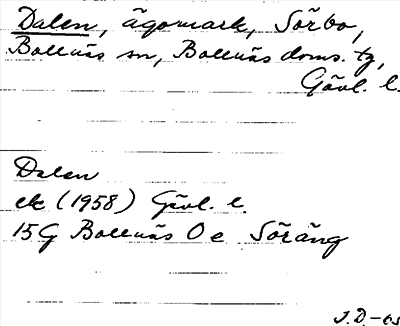 Dalen, ägomark, Sörbo,
Bollnäs sn, Bollnäs doms. tg,
Gävl. l.
Dalen
ek (1958) Gävl. l.
15G Bollnäs O e Söräng
J.D.-65